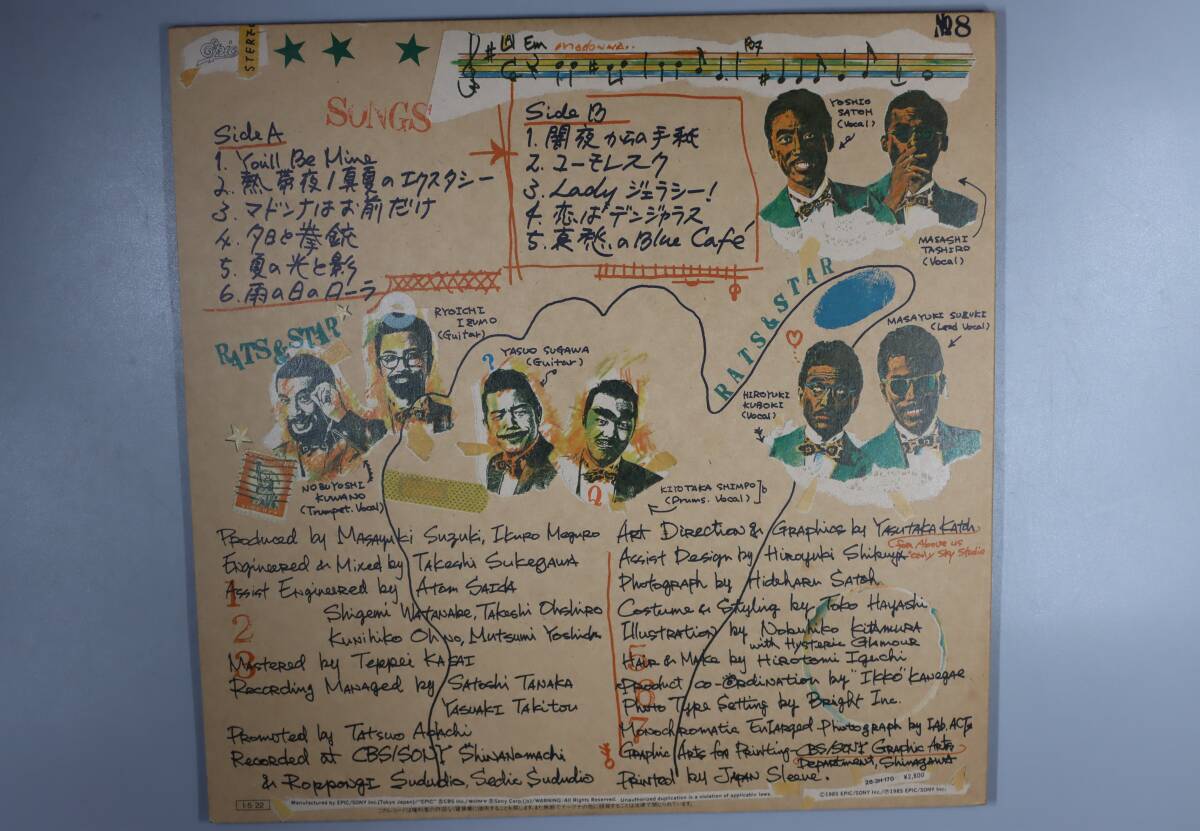 Epic
STEREO
Em
madonna..
B7
No 8
SONGS
Side A
1. You'll Be Mine
2. 熱帯夜/真夏のエクスタシー
3. マドンナはお前だけ
4. 夕日と拳銃
5. 夏の光と影
6. 雨の日のローラ
Side B
1. 闇夜からの手紙
2. ユーモレスク
3. Lady ジェラシー!
4. 恋はデンジャラス
5. 哀愁のBlue Café
YOSHIO SATOH (Vocal)
MASASHI TASHIRO (Vocal)
RATS & STAR
RATS & STAR
RYOICHI IZUMO (Guitar)
YASUO SUGAWA (Guitar)
?
MASAYUKI SUZUKI (Lead Vocal)
HIROYUKI KUBOKI (Vocal)
NOBUYOSHI KUWANO (Trumpet. Vocal)
KIYOTAKA SHIMPO (Drums. Vocal)
Produced by Masayuki Suzuki, Ikuro Meguro
Engineered & Mixed by Takeshi Sukegawa
Assist Engineered by Atom SAIDA
Shigemi Watanabe, Takashi Ohshiro
Kunihiko Ohno, Mutsumi Yoshida
Mastered by Teppei KASAI
Recording Managed by Satoshi TANAKA
YASUAKI TAKITOU
Promoted by Tatsuo Adachi
Recorded at CBS/SONY Shinanomachi
& Roppongi Sududio, Sedic Sududio
1
2
3
Art Direction & Graphics by YASUTAKA KATOH
for Above us only Sky Studio
Assist Design by Hiroyuki Shibuya
Photograph by Hideharu Satoh
Costume & Styling by Toko Hayashi
Illustration by Nobuhiko KITAMURA
with Hysteric Glamour
Hair & Make by Hirotomi Iguchi
Product co-ordination by "IKKO" Kanegae
Photo Type Setting by Bright Inc.
Monochromatic Enlarged Photograph by Lab. ACTs
Graphic Arts for Printing-CBS/SONY Graphic Arts
Department, Shinagawa
Printed by Japan Sleeve.
5
6
7
28·3H-170 ¥2,800
I·S 22
Manufactured by EPIC/SONY Inc.(Tokyo Japan)/"EPIC" ⓇCBS Inc./ Ⓡ Sony Corp.(Jp)/WARNING: All Rights Reserved. Unauthorized duplication is a violation of applicable laws.
©1985 EPIC/SONY Inc./Ⓟ1985 EPIC/SONY Inc.